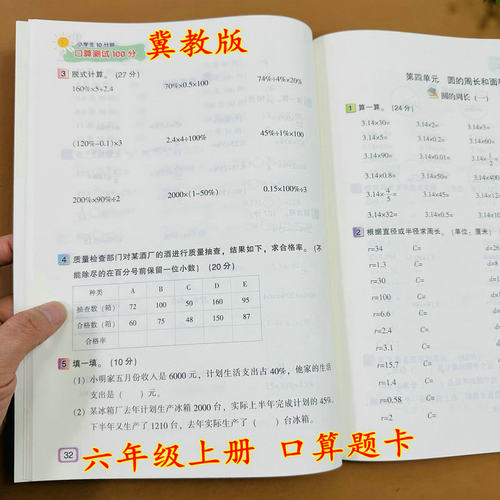 冀教版
小学生10分钟
口算测试100分
3 脱式计算。(27分)
160%×5+2.4 70%×0.5×100 74%÷4%×20%
(120%-0.1)×3 2.4×4÷100% 45%÷1%×100
200%×90%÷2 2000×(1-50%) 0.15×100%÷3
4 质量检查部门对某酒厂的酒进行质量抽查,结果如下,求合格率。(不
能除尽的在百分号前保留一位小数)(20分)
种类 A B C D E
抽查数(箱) 72 100 50 160 95
合格数(箱) 60 75 48 150 87
合格率
5 填一填。(10分)
(1)小明家五月份收入是6000元,计划生活支出占40%,他家的生活
支出是( )元。
(2)某冰箱厂去年计划生产冰箱2000台,实际上半年完成计划的45%,
下半年又生产了1210台,去年实际生产了( )台冰箱。
32
第四单元 圆的周长和面
圆的周长(一)
1 算一算。(24分)
3.14×30= 3.14×3=
3.14×5= 3.14×0.2= 3.14
3.14×90= 3.14×0.01= 3.14×
3.14×0.8= 3.14×50= 3.14×400
3.14×4/5= 3.14×45= 3.14×12
3.14×32= 3.14×0.5= 3.14×
2 根据直径或半径求周长。(单位:厘米)
r=34 C= d=26
r=1.3 C= d=8
r=30 C= d=
r=100 C= d=
r=6.6 C= d=
r=2.4 C= d=
r=3.1 C= d=
r=15.7 C= d=
r=1.4 C= d=
r=0.58 C= d=
r=2 C=
六年级上册 口算题卡